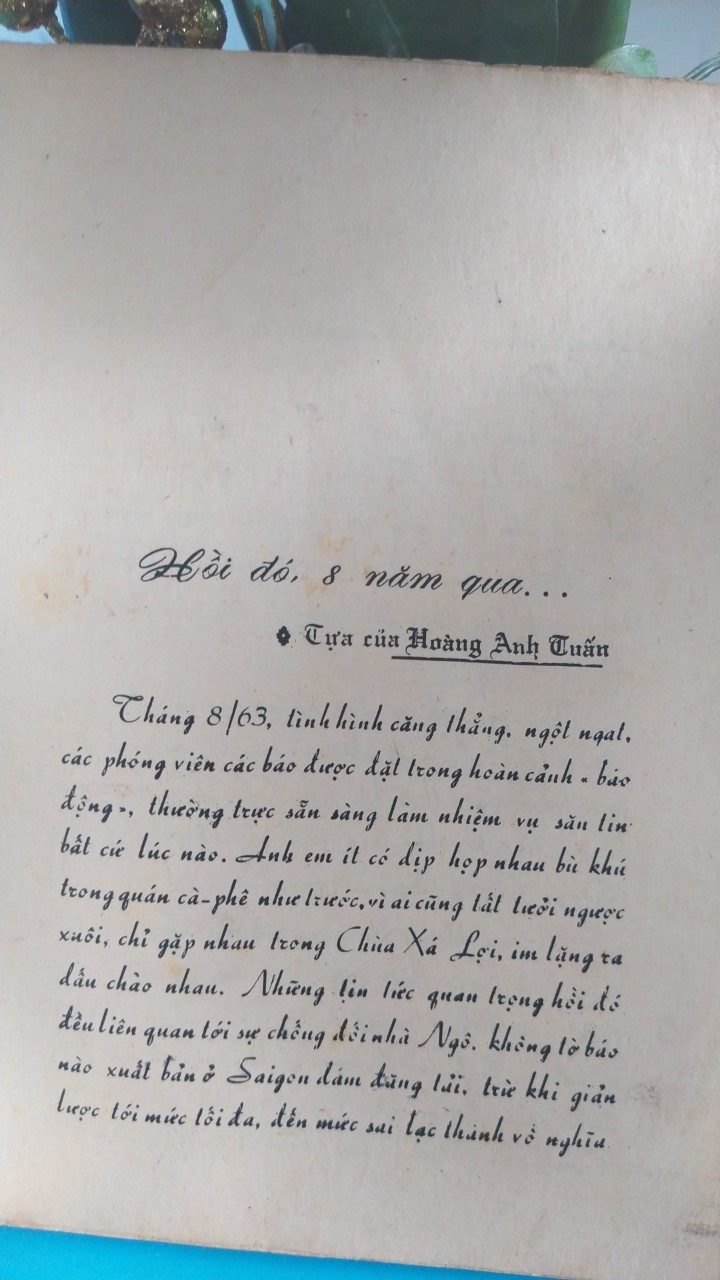 Hồi đó, 8 năm qua...
Tựa của Hoàng Anh Tuấn
Tháng 8/63, tình hình căng thẳng, ngột ngạt,
các phóng viên các báo được đặt trong hoàn cảnh « báo
động », thường trực sẵn sàng làm nhiệm vụ săn tin
bất cứ lúc nào. Anh em ít có dịp họp nhau bù khú
trong quán cà-phê như trước, vì ai cũng tất tưởi ngược
xuôi, chỉ gặp nhau trong Chùa Xá Lợi, im lặng ra
dấu chào nhau. Những tin tức quan trọng hồi đó
đều liên quan tới sự chống đối nhà Ngô. không tờ báo
nào xuất bản ở Saigon dám đăng tải, trừ khi giản
lược tới mức tối đa, đến mức sai lạc thành vô nghĩa